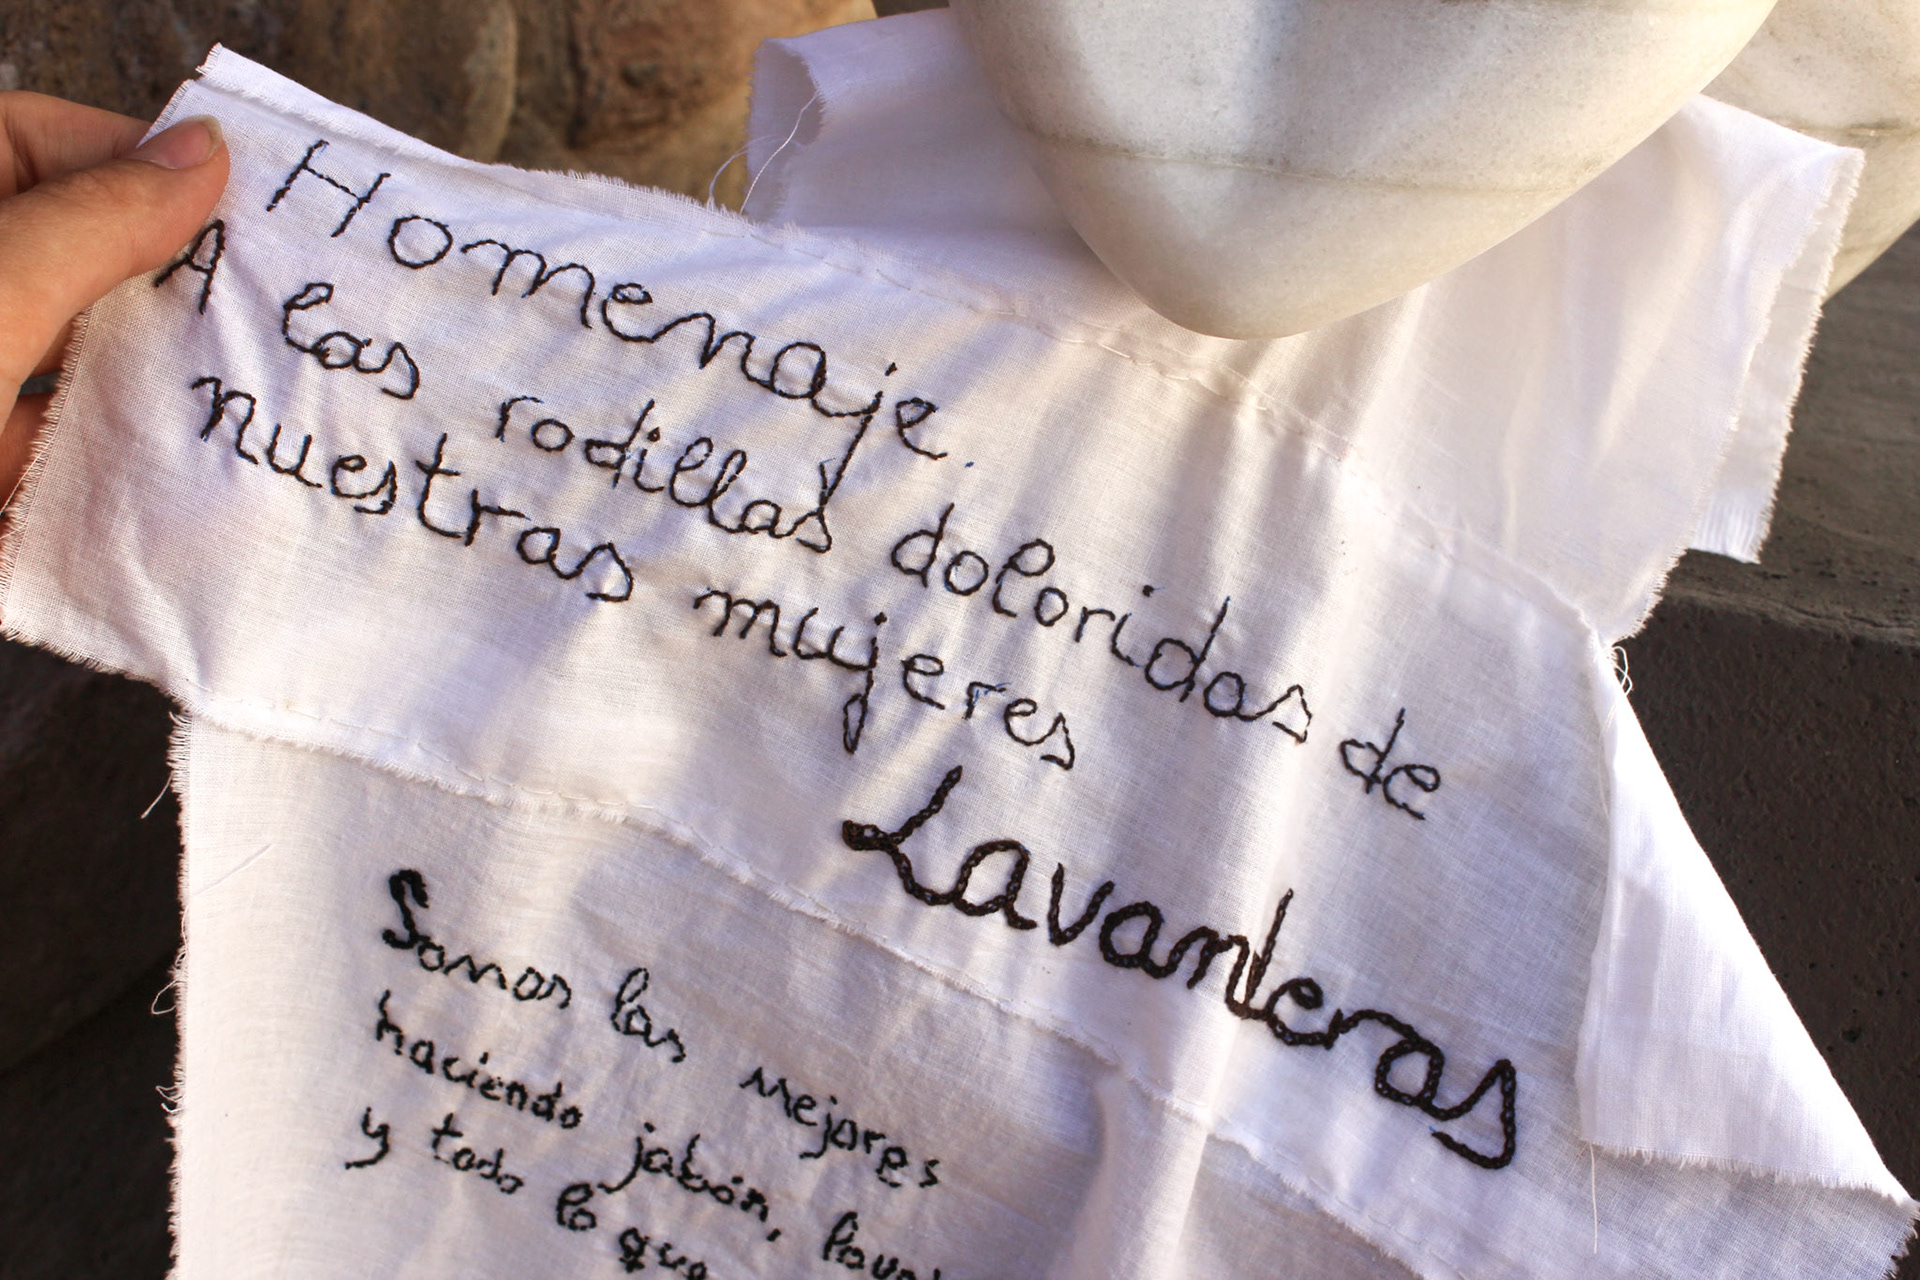 Homenaje
A las rodillas doloridas de
nuestras mujeres
Lavanderas
Somos las mejores
haciendo jabón,
y todo lo que